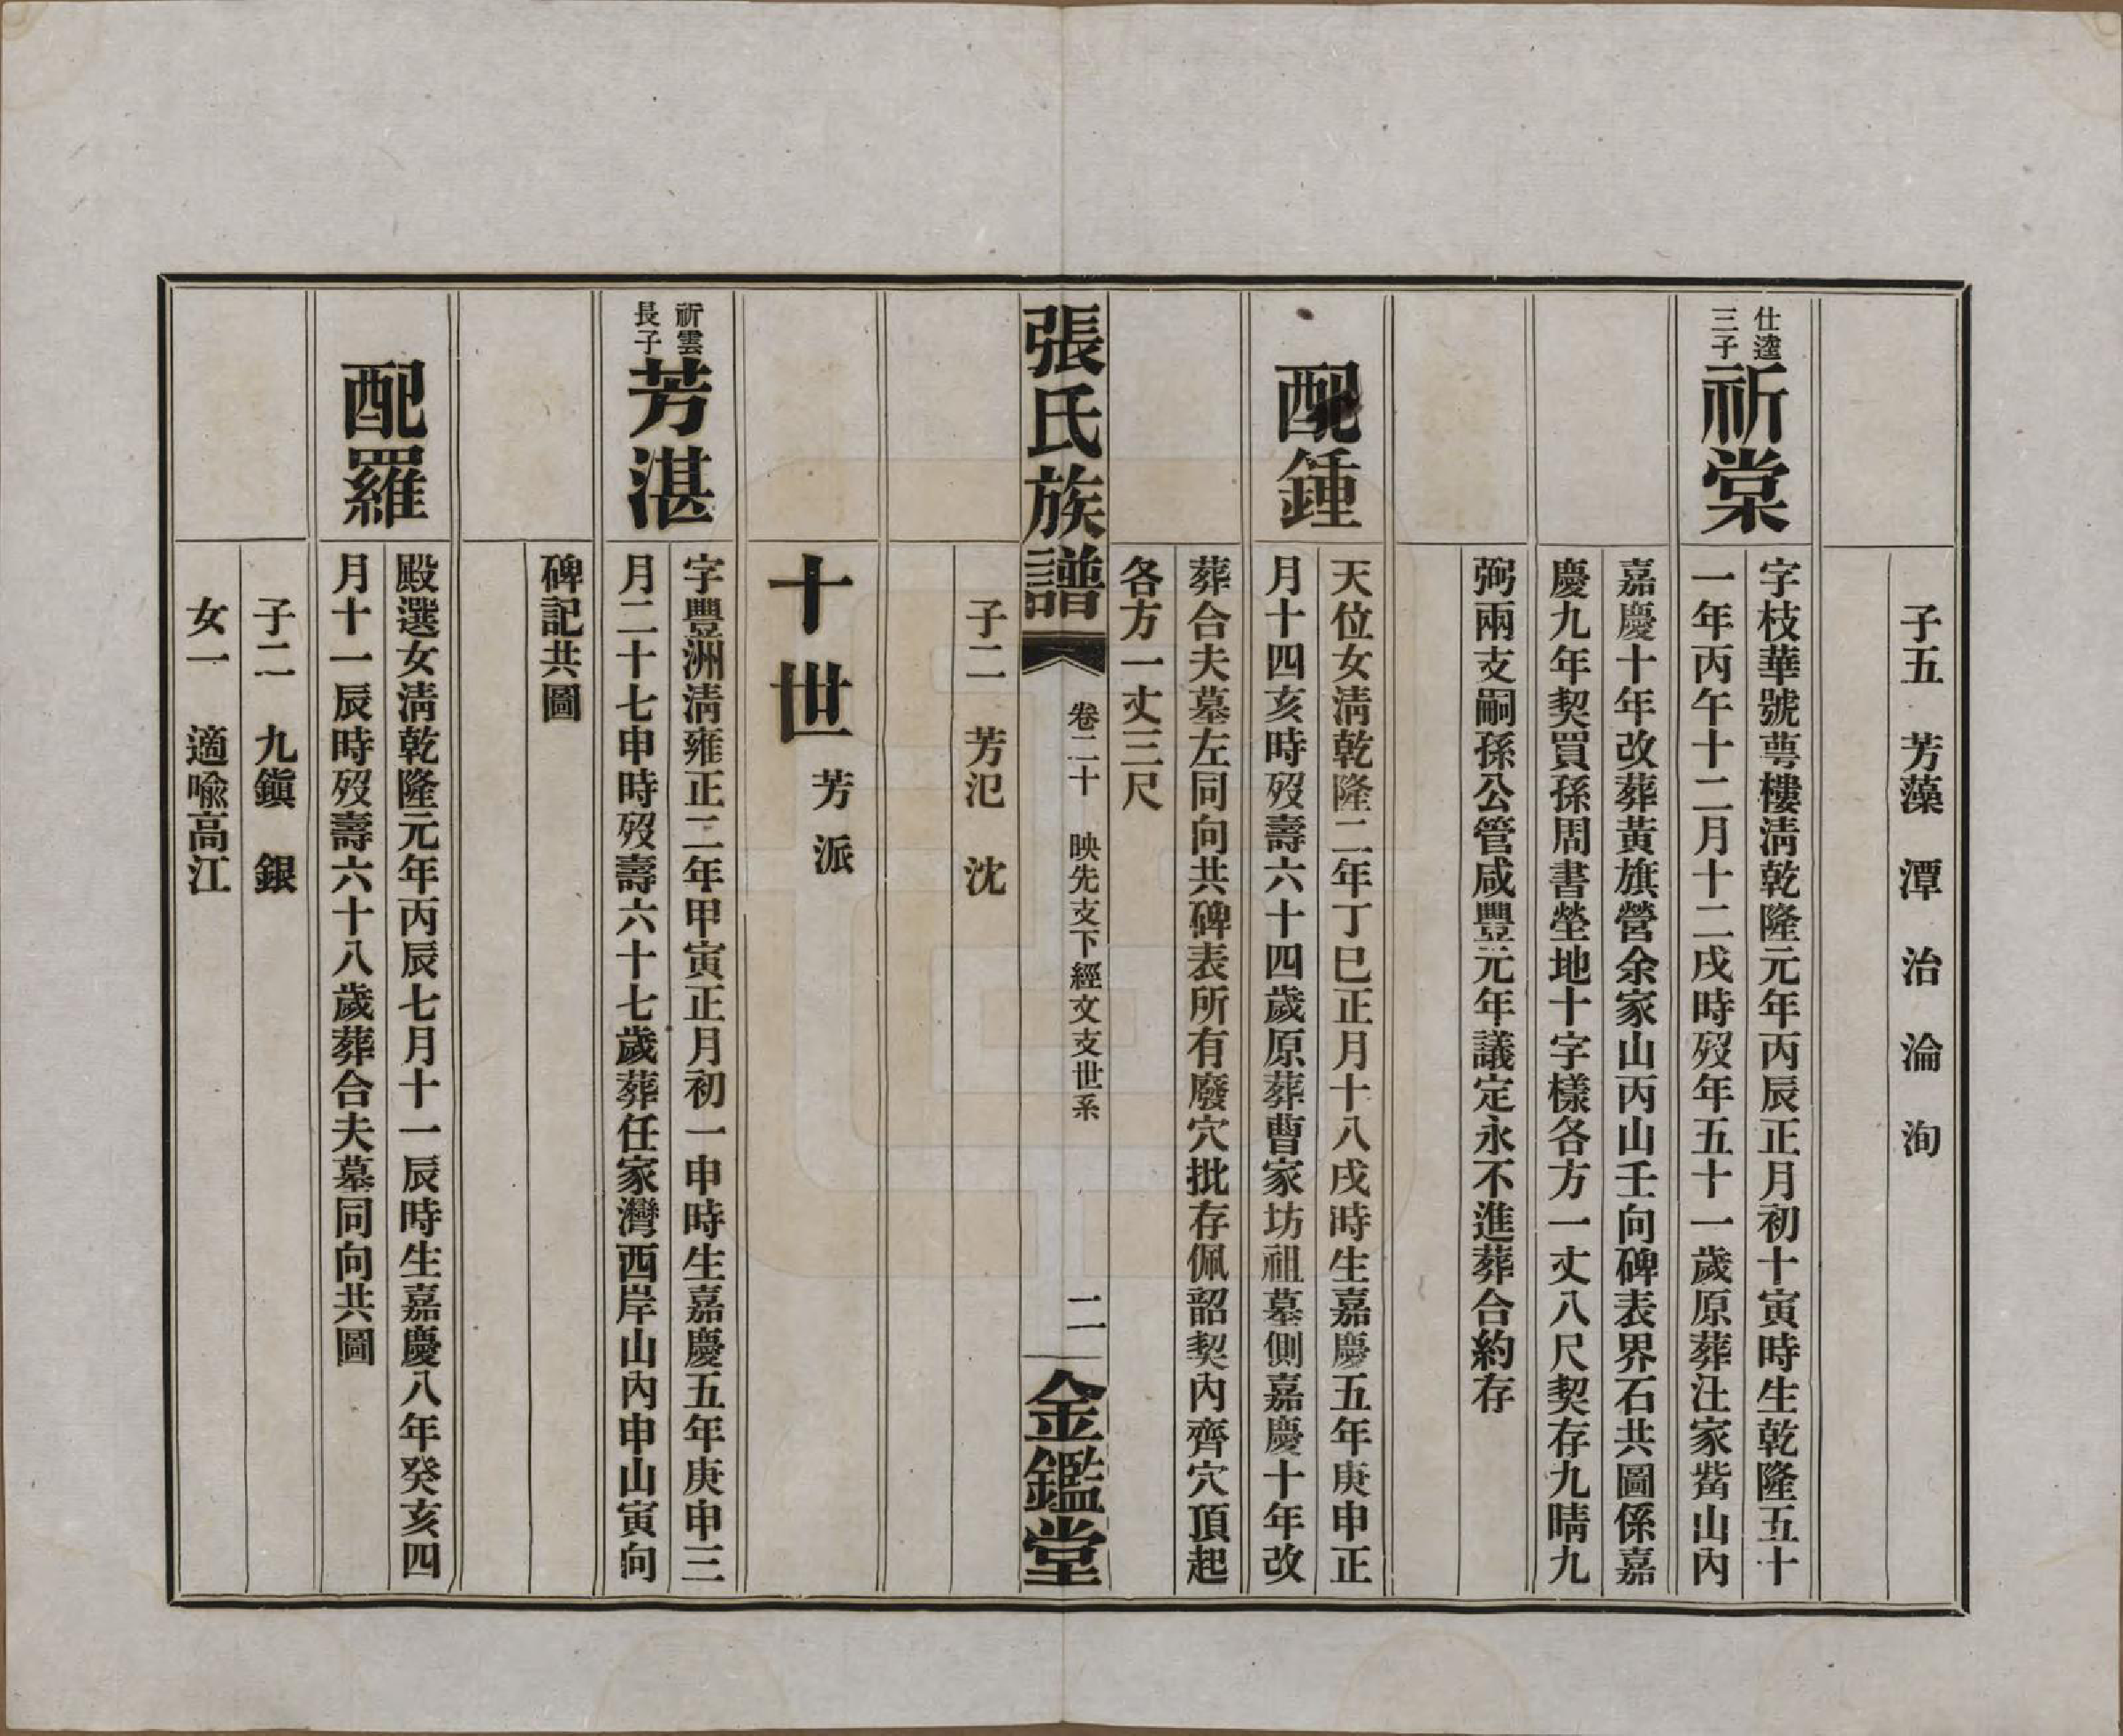 子五　芳藻　潭　治　淪　洵
仕逵
三子
祈棠
字枝華號蕚樓淸乾隆元年丙辰正月初十寅時生乾隆五十
一年丙午十二月十二戌時歿年五十一歲原葬汪家嘴山內
嘉慶十年改葬黃旗營余家山丙山壬向碑表界石共圖係嘉
慶九年契買孫周書塋地十字樣各方一丈八尺契存九晴九
弼兩支嗣孫公管咸豐元年議定永不進葬合約存
配鍾
天位女淸乾隆二年丁巳正月十八戌時生嘉慶五年庚申正
月十四亥時歿壽六十四歲原葬曹家坊祖墓側嘉慶十年改
葬合夫墓左同向共碑表所有廢穴批存佩韶契內齊穴頂起
各方一丈三尺
張氏族譜
卷二十　映先支下經文支世系
二
金鑑堂
子二　芳汜　沈
十世　芳派
祈雲
長子
芳湛
字豐洲淸雍正二年甲寅正月初一申時生嘉慶五年庚申三
月二十七申時歿壽六十七歲葬任家灣西岸山內申山寅向
碑記共圖
配羅
殿選女淸乾隆元年丙辰七月十一辰時生嘉慶八年癸亥四
月十一辰時歿壽六十八歲葬合夫墓同向共圖
子二　九鎭　銀
女一　適喩高江